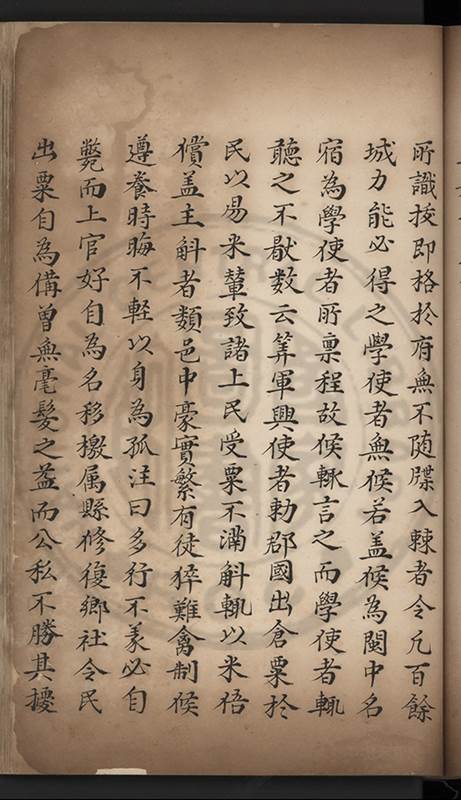 所識拔即格於府無不随牒入棘者令凡百餘
城力能必得之學使者無候若盖候為閩中名
宿為學使者所稟程故候輙言之而學使者輙
聽之不厭数云筭軍興使者勅郡國出倉粟於
民以易米輦致諸上民受粟不滿斛輒以米倍
償盖主斛者類邑中豪實繁有徒猝難禽制候
遵養時晦不軽以身為孤注曰多行不義必自
斃而上官好自為名移檄属縣修復鄉社令民
出粟自為備曽無毫髮之益而公私不勝其擾